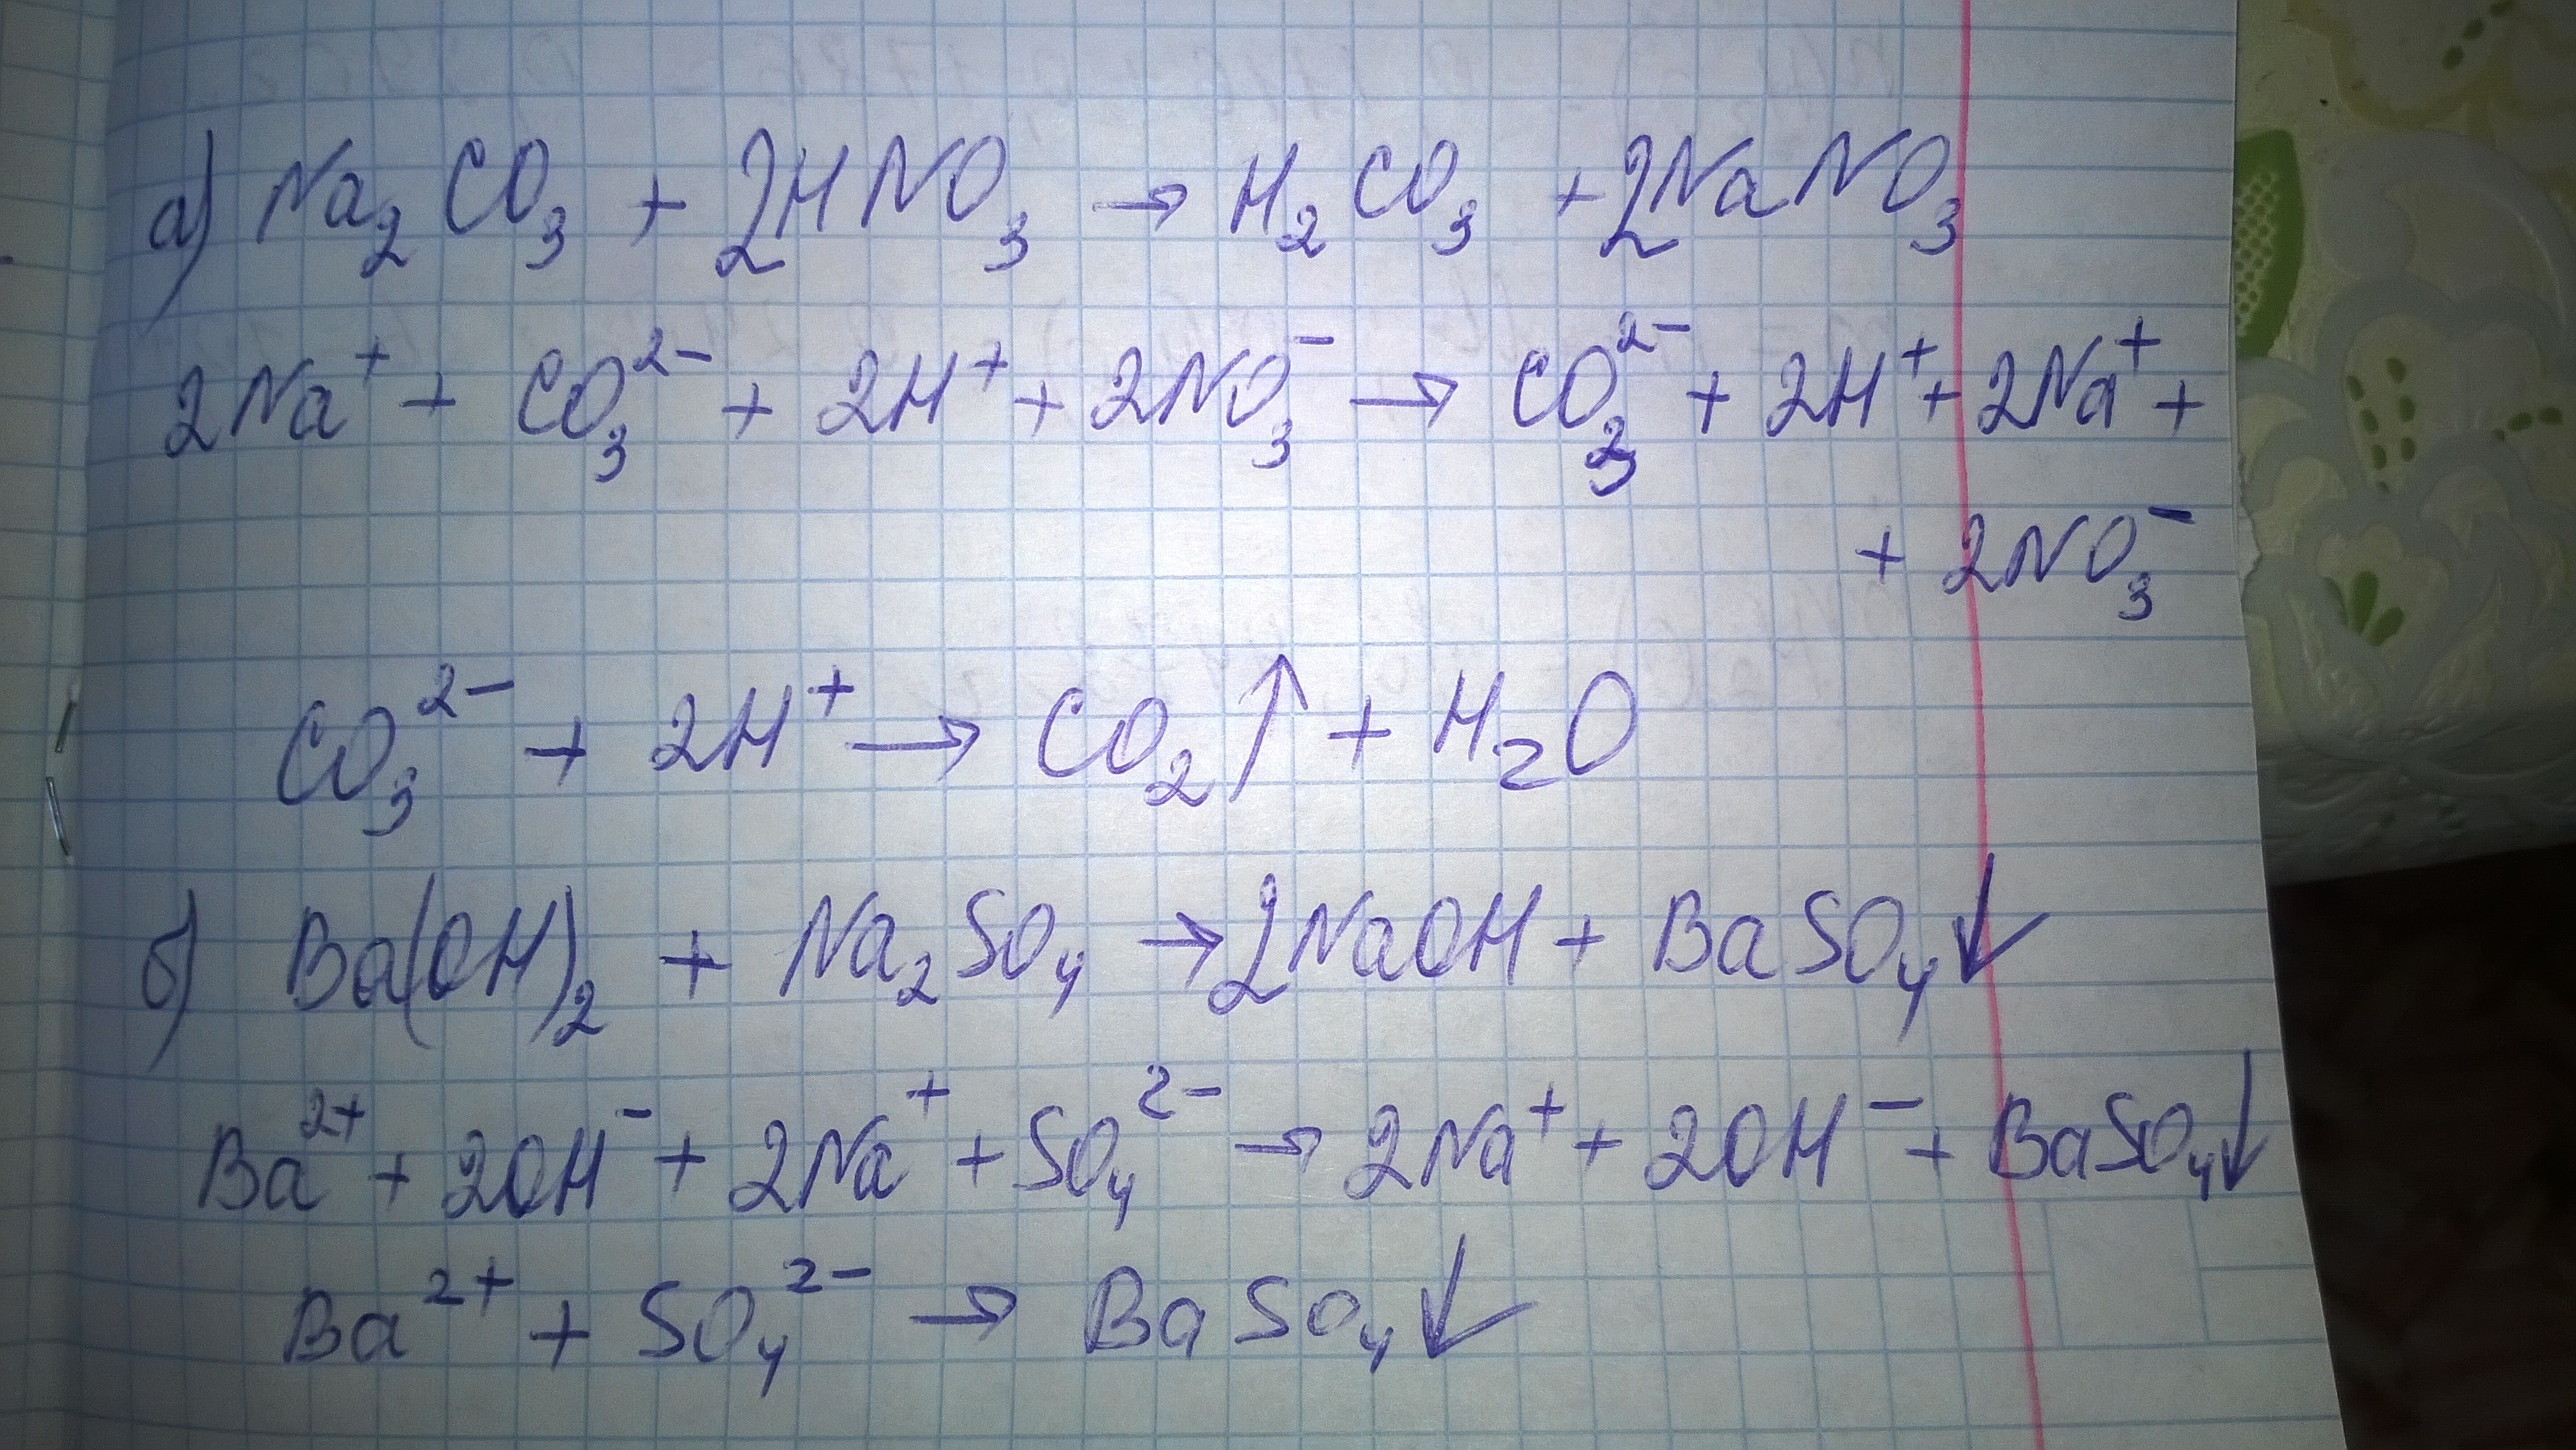 а) Na₂CO₃ + 2HNO₃ → H₂CO₃ + 2NaNO₃
2Na⁺ + CO₃²⁻ + 2H⁺ + 2NO₃⁻ → CO₃²⁻ + 2H⁺ + 2Na⁺ +
+ 2NO₃⁻
CO₃²⁻ + 2H⁺ → CO₂↑ + H₂O
б) Ba(OH)₂ + Na₂SO₄ → 2NaOH + BaSO₄↓
Ba²⁺ + 2OH⁻ + 2Na⁺ + SO₄²⁻ → 2Na⁺ + 2OH⁻ + BaSO₄↓
Ba²⁺ + SO₄²⁻ → BaSO₄↓